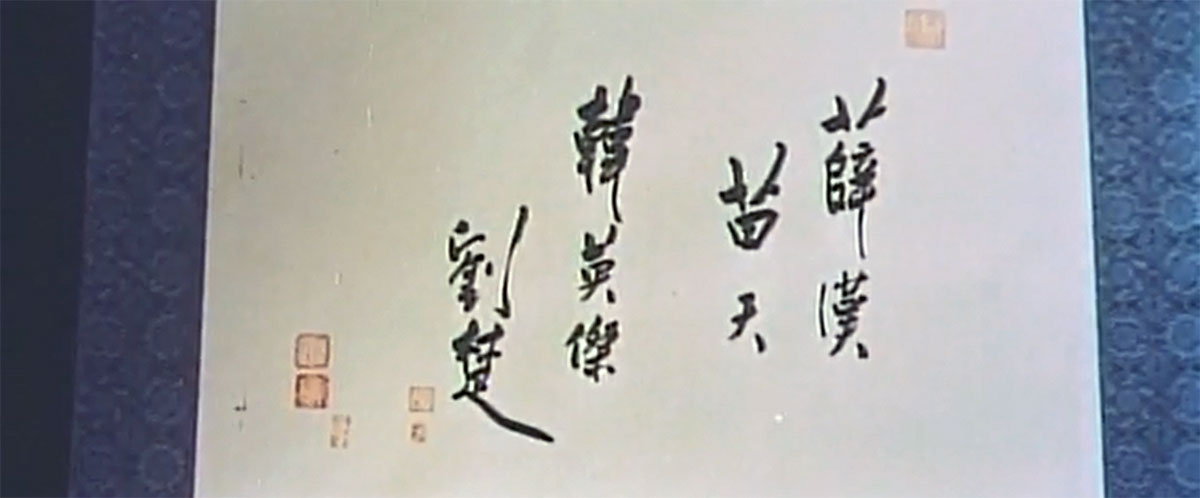 薛漢
苗天
韓英傑
劉楚